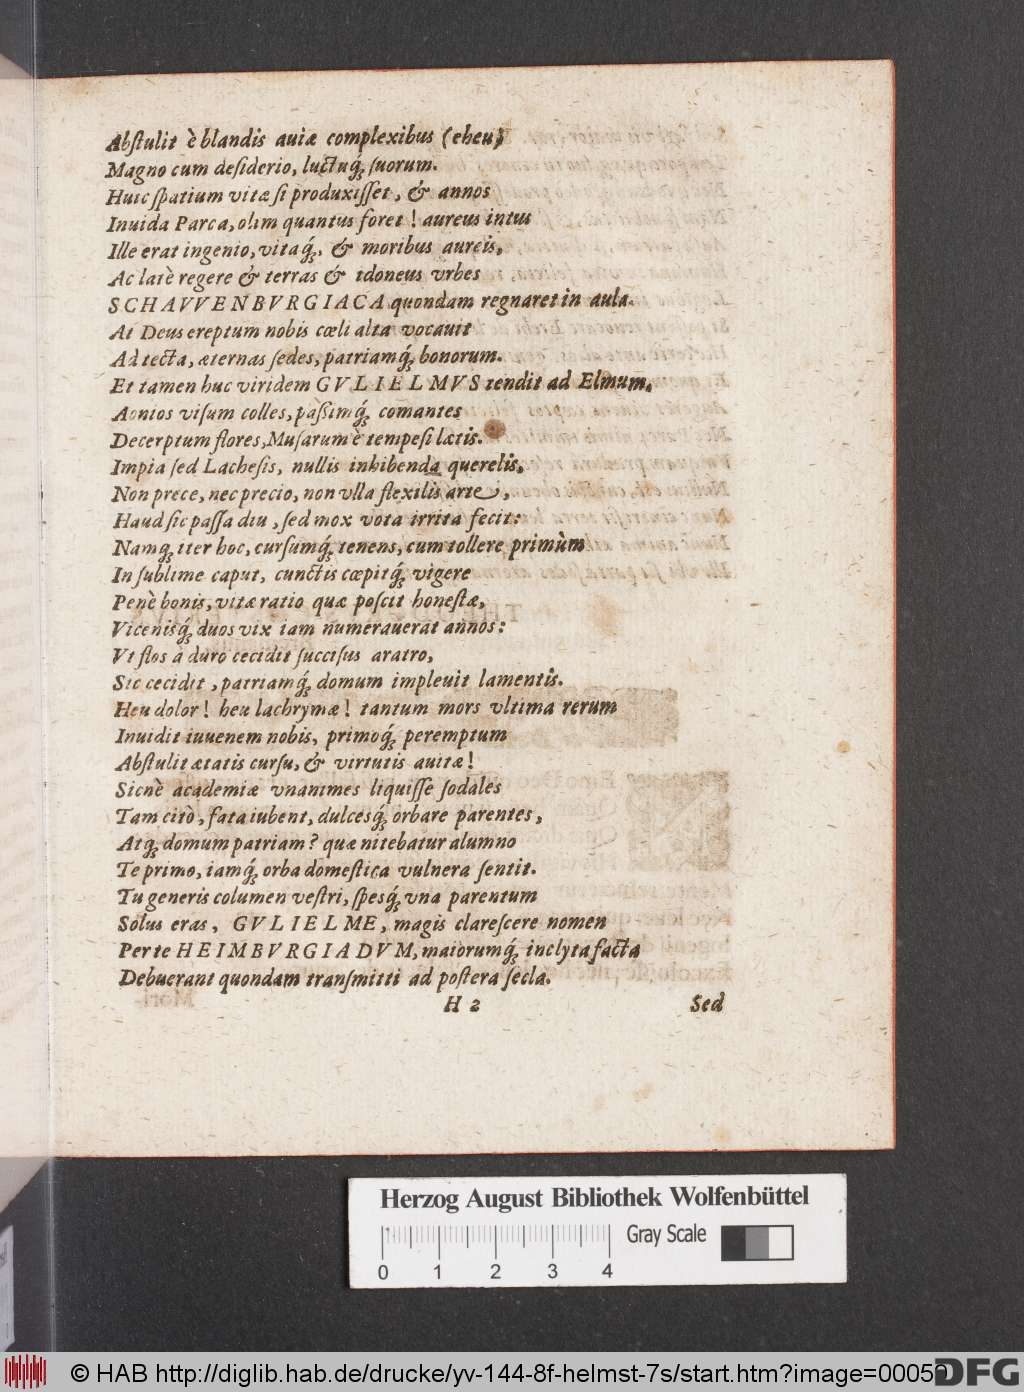 Abſtulit è blandis auiæ complexibus (eheu)
Magno cum deſiderio, luctuq́; ſuorum.
Huic ſpatium vitæ ſi produxiſſet, & annos
Inuida Parca, olim quantus foret! aureus intus
Ille erat ingenio, vitaq́;, & moribus aureis,
Ac latè regere & terras & idoneus vrbes
SCHAVVENBVRGIACA quondam regnaret in aula.
At Deus ereptum nobis cœli alta vocauit
Ad tecta, æternas ſedes, patriamq́; bonorum.
Et tamen huc viridem GVLIELMVS tendit ad Elmum,
Aonios viſum colles, paſſimq́; comantes
Decerptum flores, Muſarum è tempeſi lætis.
Impia ſed Lacheſis, nullis inhibenda querelis,
Non prece, nec precio, non vlla flexilis arte,
Haud ſic paſſa diu, ſed mox vota irrita fecit:
Namq; iter hoc, curſumq́; tenens, cum tollere primùm
In ſublime caput, cunctis cœpitq́; vigere
Penè bonis, vitæ ratio quæ poſcit honeſtæ,
Vicenisq́; duos vix iam numerauerat annos:
Vt flos à duro cecidit ſucciſus aratro,
Sic cecidit, patriamq́; domum impleuit lamentis.
Heu dolor! heu lachrymæ! tantum mors vltima rerum
Inuidit iuuenem nobis, primoq́; peremptum
Abſtulit ætatis curſu, & virtutis auitæ!
Sicnè academiæ vnanimes liquiſſe ſodales
Tam citò, fata iubent, dulcesq́; orbare parentes,
Atq; domum patriam? quæ nitebatur alumno
Te primo, iamq́; orba domeſtica vulnera ſentit.
Tu generis columen veſtri, ſpesq́; vna parentum
Solus eras, GVLIELME, magis clareſcere nomen
Per te HEIMBVRGIADVM, maiorumq́; inclyta facta
Debuerant quondam tranſmitti ad poſtera ſecla.
H 2 Sed
Herzog August Bibliothek Wolfenbüttel
Gray Scale
0 1 2 3 4
© HAB http://diglib.hab.de/drucke/yv-144-8f-helmst-7s/start.htm?image=00059
DFG